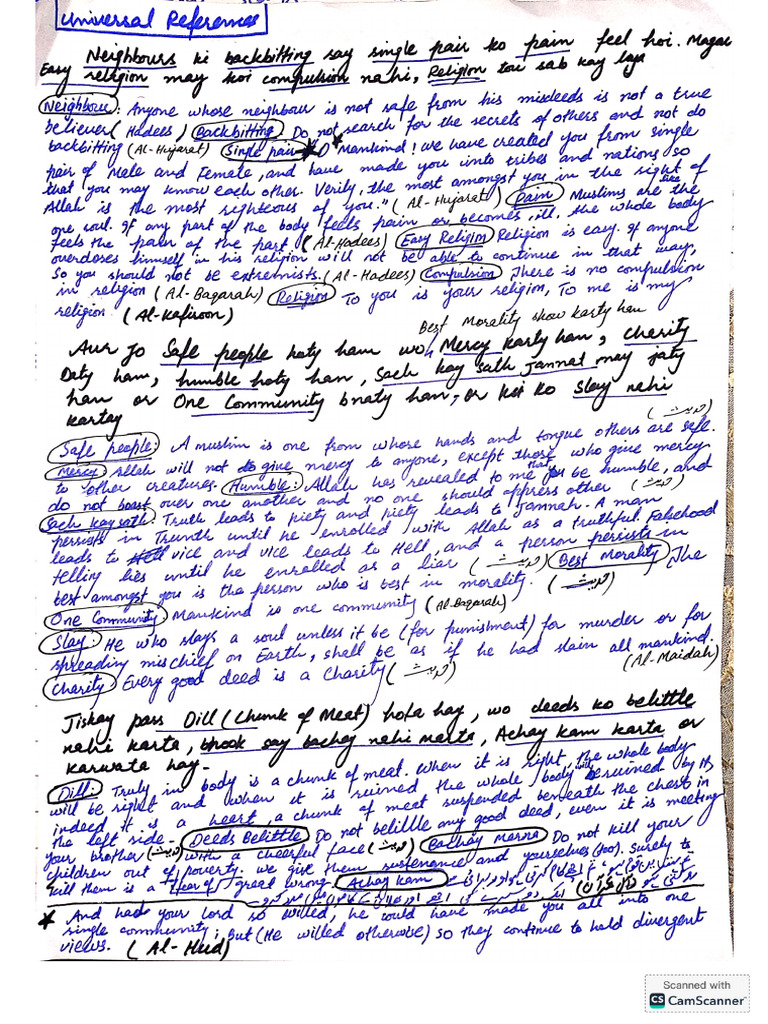 Universal References
Neighbours ki backbitting say single pair ko pain feel hoi. Magar
Easy religion may koi compulsion nahi, Religion tou sab kay laya
Neighbour: Anyone whose neighbour is not safe from his misdeeds is not a true
believer (Hadees) Backbitting Do not search for the secrets of others and not do
backbitting (Al-Hujarat) Single pair O Mankind! we have created you from single
pair of Male and Female, and have made you into tribes and nations so
that you may know each other. Verily, the most amongst you in the sight of
Allah is the most righteous of you." (Al-Hujarat) Pain Muslims are like the
one soul. If any part of the body feels pain or becomes, ill, the whole body
feels the pain of the part (Al-Hadees) Easy Religion Religion is easy. If anyone
overdoses himself in his religion will not be able to continue in that way,
So you should not be extremists. (Al-Hadees) Compulsion There is no compulsion
in religion (Al-Baqarah) Religion To you is your religion, To me is my
religion. (Al-Kafiroon)
Best Morality show karty han
Aur Jo Safe people hoty ham wo Mercy karty han, Charity
Daty ham, humble hoty han, Sach kay sath Jannat may jaty
han or One Community bnaty han, or kei ko Slay nahi
kartay
(حدیث)
Safe people: A muslim is one from whose hands and tongue others are safe.
Mercy Allah will not do give mercy to anyone, except those who give mercy
to other creatures. Humble: Allah has revealed to me that be humble, and
do not boast over one another and no one should oppress other (حدیث)
Sach kay sath: Truth leads to piety and piety leads to Jannah. A man
persists in Trunth until he enrolled with Allah as a truthful. Falsehood
leads to vice and vice leads to Hell, and a person persists in
telling lies until he enrolled as a liar (حدیث) Best Morality The
best amongst you is the person who is best in morality. (حدیث)
One Community: Mankind is one community (Al-Baqarah)
Slay: He who slays a soul unless it be (for punishment) for murder or for
spreading mischief on Earth, shall be as if he had slain all mankind.
(Al-Maidah)
Charity Every good deed is a Charity (حدیث)
Jiskay pass Dill (Chunk of Meat) hota hay, wo deeds ko belittle
nahi karta, bhook say bachay nahi marta, Achay kam karta or
karwata hay-
Dill: Truly in body is a chunk of meat. When it is right, the whole body
will be right and when it is ruined the whole body will be ruined by it
indeed it is a heart, a chunk of meat suspended beneath the chest in
the left side - Deeds Belittle Do not belittle any good deed, even it is meeting
your brother (حدیث) with a cheerful face (حدیث) Bachay marna Do not kill your
children out of poverty. we give them sustenance and yourselves (too). Surely to
kill them is a great wrong. Achay kam
(القرآن)
* And had your Lord so willed, he could have made you all into one
single community; But (He willed otherwise) so they continue to hold divergent
views. (Al-Hud)
Scanned with
CS CamScanner